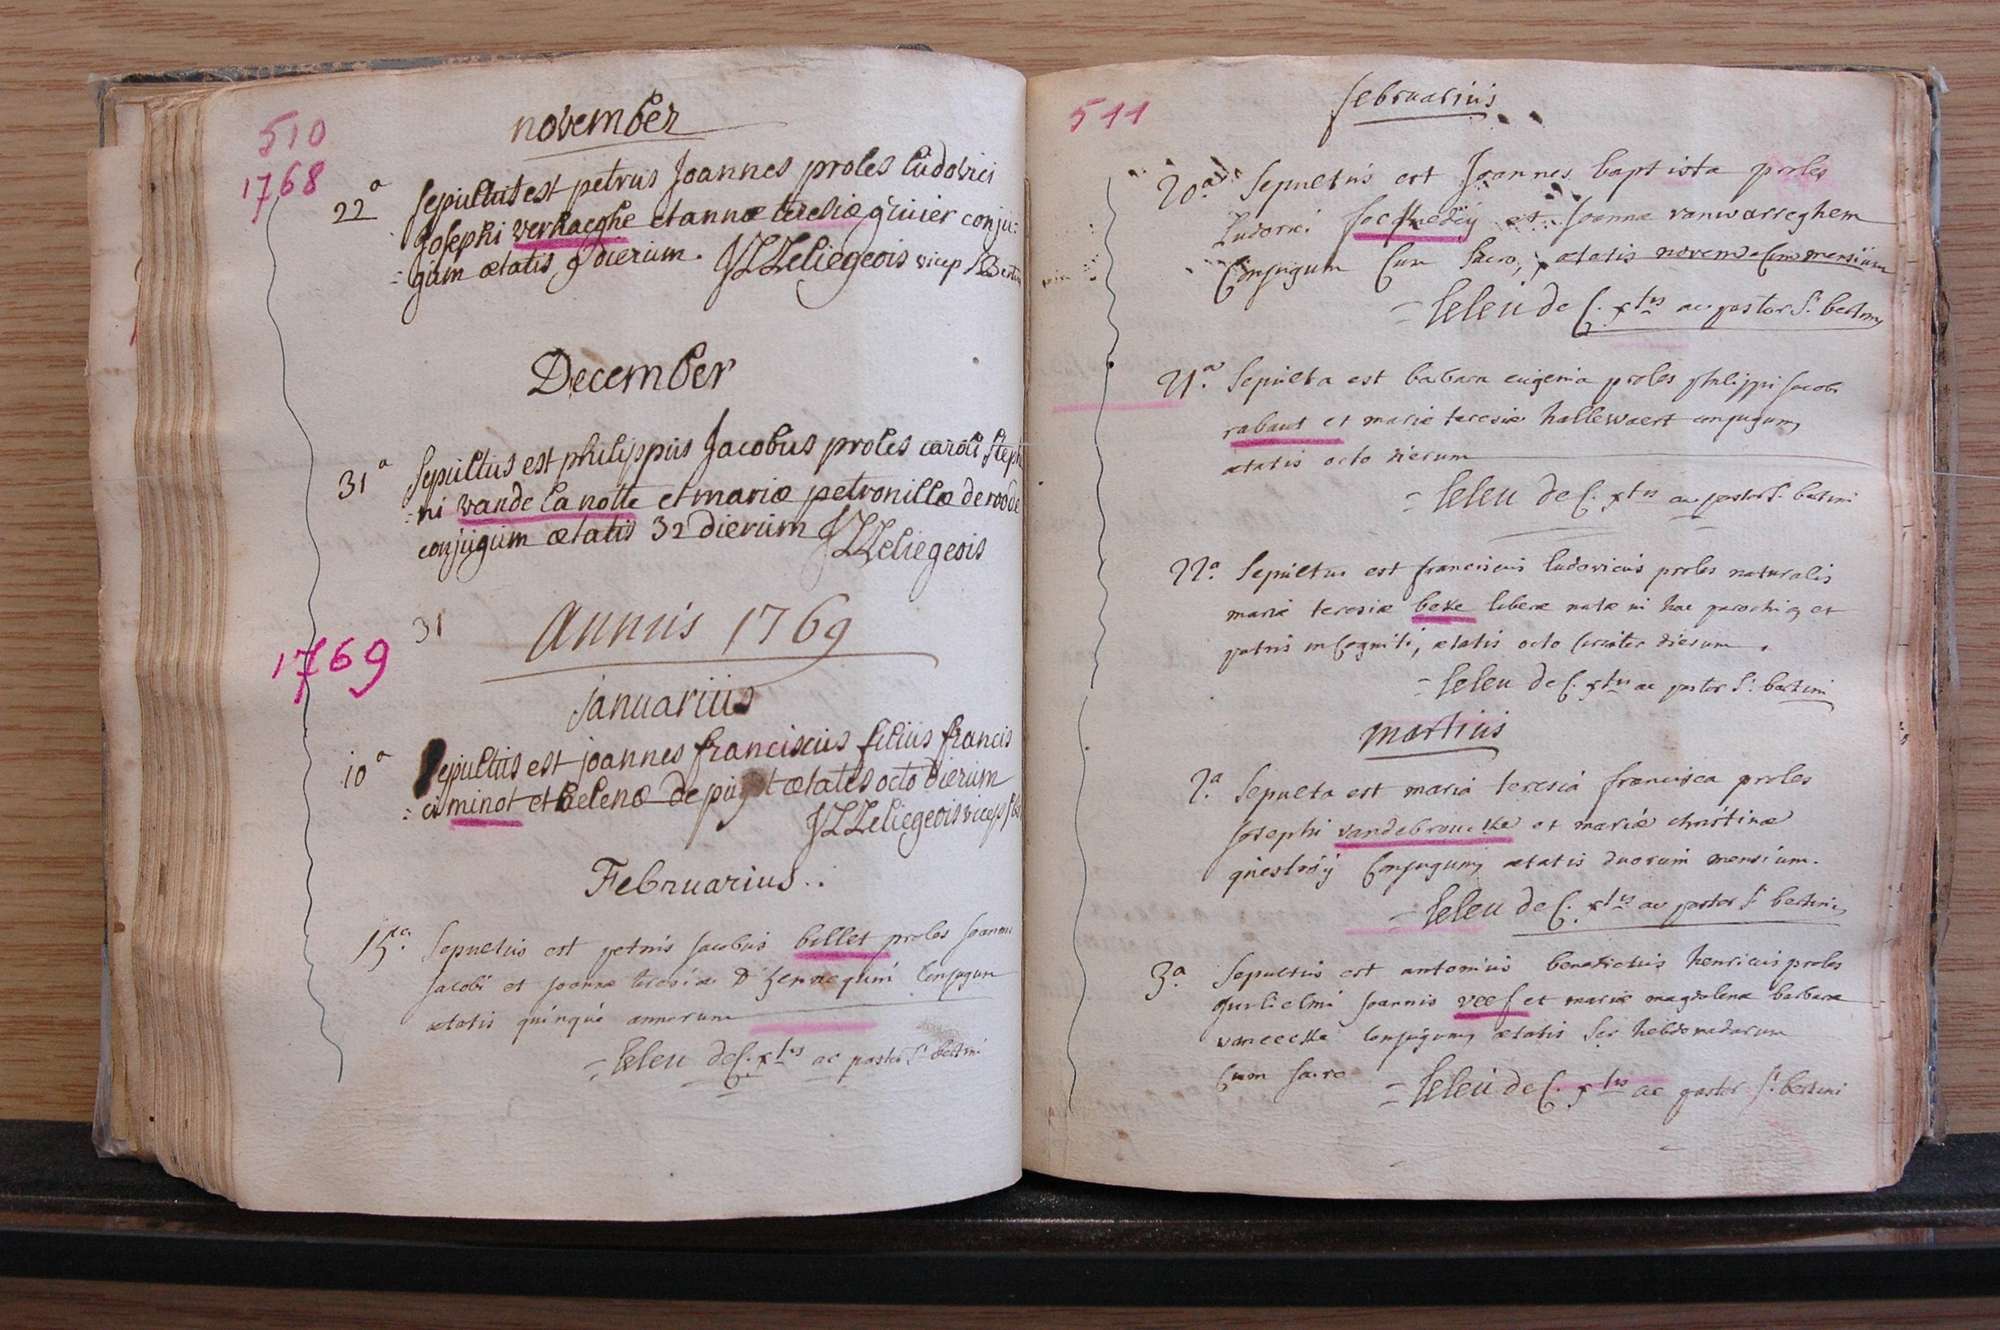 510
november
1768
22ª Sepultus est petrus Joannes proles ludovici
Josephi verhaeghe et annæ teresiæ conju:
=gum ætatis 9 dierum. JLLeliegeois vicep S Bertin
December
31ª Sepultus est philippus Jacobus proles caroli steph
=ni vande la notte et mariæ petronillæ de roode
conjugum ætatis 32 dierum JLLeliegeois
31
Annus 1769
1769
januarius
10ª Sepultus est joannes franciscus filius francis
=ci minot et helenæ de ætatis octo dierum
JLLeliegeois vicep S
Februarius..
15ª. Sepultus est petrus jacobus billet proles joannis
jacobi et joannæ teresiæ conjugum
ætatis quinque annorum
= leleu de C. xtus ac pastor Sti bertini
511
februarius
20ª Sepultus est Joannes baptista proles
Ludovici et Joannæ vanwarreghem
Conjugum Cum Sacro, ætatis novemdecim mensium
= leleu de C. xtus ac pastor Sti bertini
21ª. Sepulta est babara eugenia proles philippi jacobi
rabaut et mariæ teresiæ hallewaert conjugum
ætatis octo dierum
= leleu de C. xtus ac pastor Sti bertini
22ª. Sepultus est franciscus ludovicus proles naturalis
mariæ teresiæ beke liberæ natæ in hac parochia et
patris incogniti, ætatis octo circiter dierum.
= leleu de C. xtus ac pastor Sti bertini
martius
2ª. Sepulta est maria teresia francisca proles
Josephi vandebroucke et mariæ christinæ
questroy Conjugum ætatis duorum mensium.
= leleu de C. xtus ac pastor Sti bertini
3ª. Sepultus est antonius benedictus henricus proles
guilielmi joannis et mariæ magdalenæ barbaræ
vaneecke Conjugum ætatis sex hebdomadarum
Cum sacro = leleu de C. xtus ac pastor Sti bertini